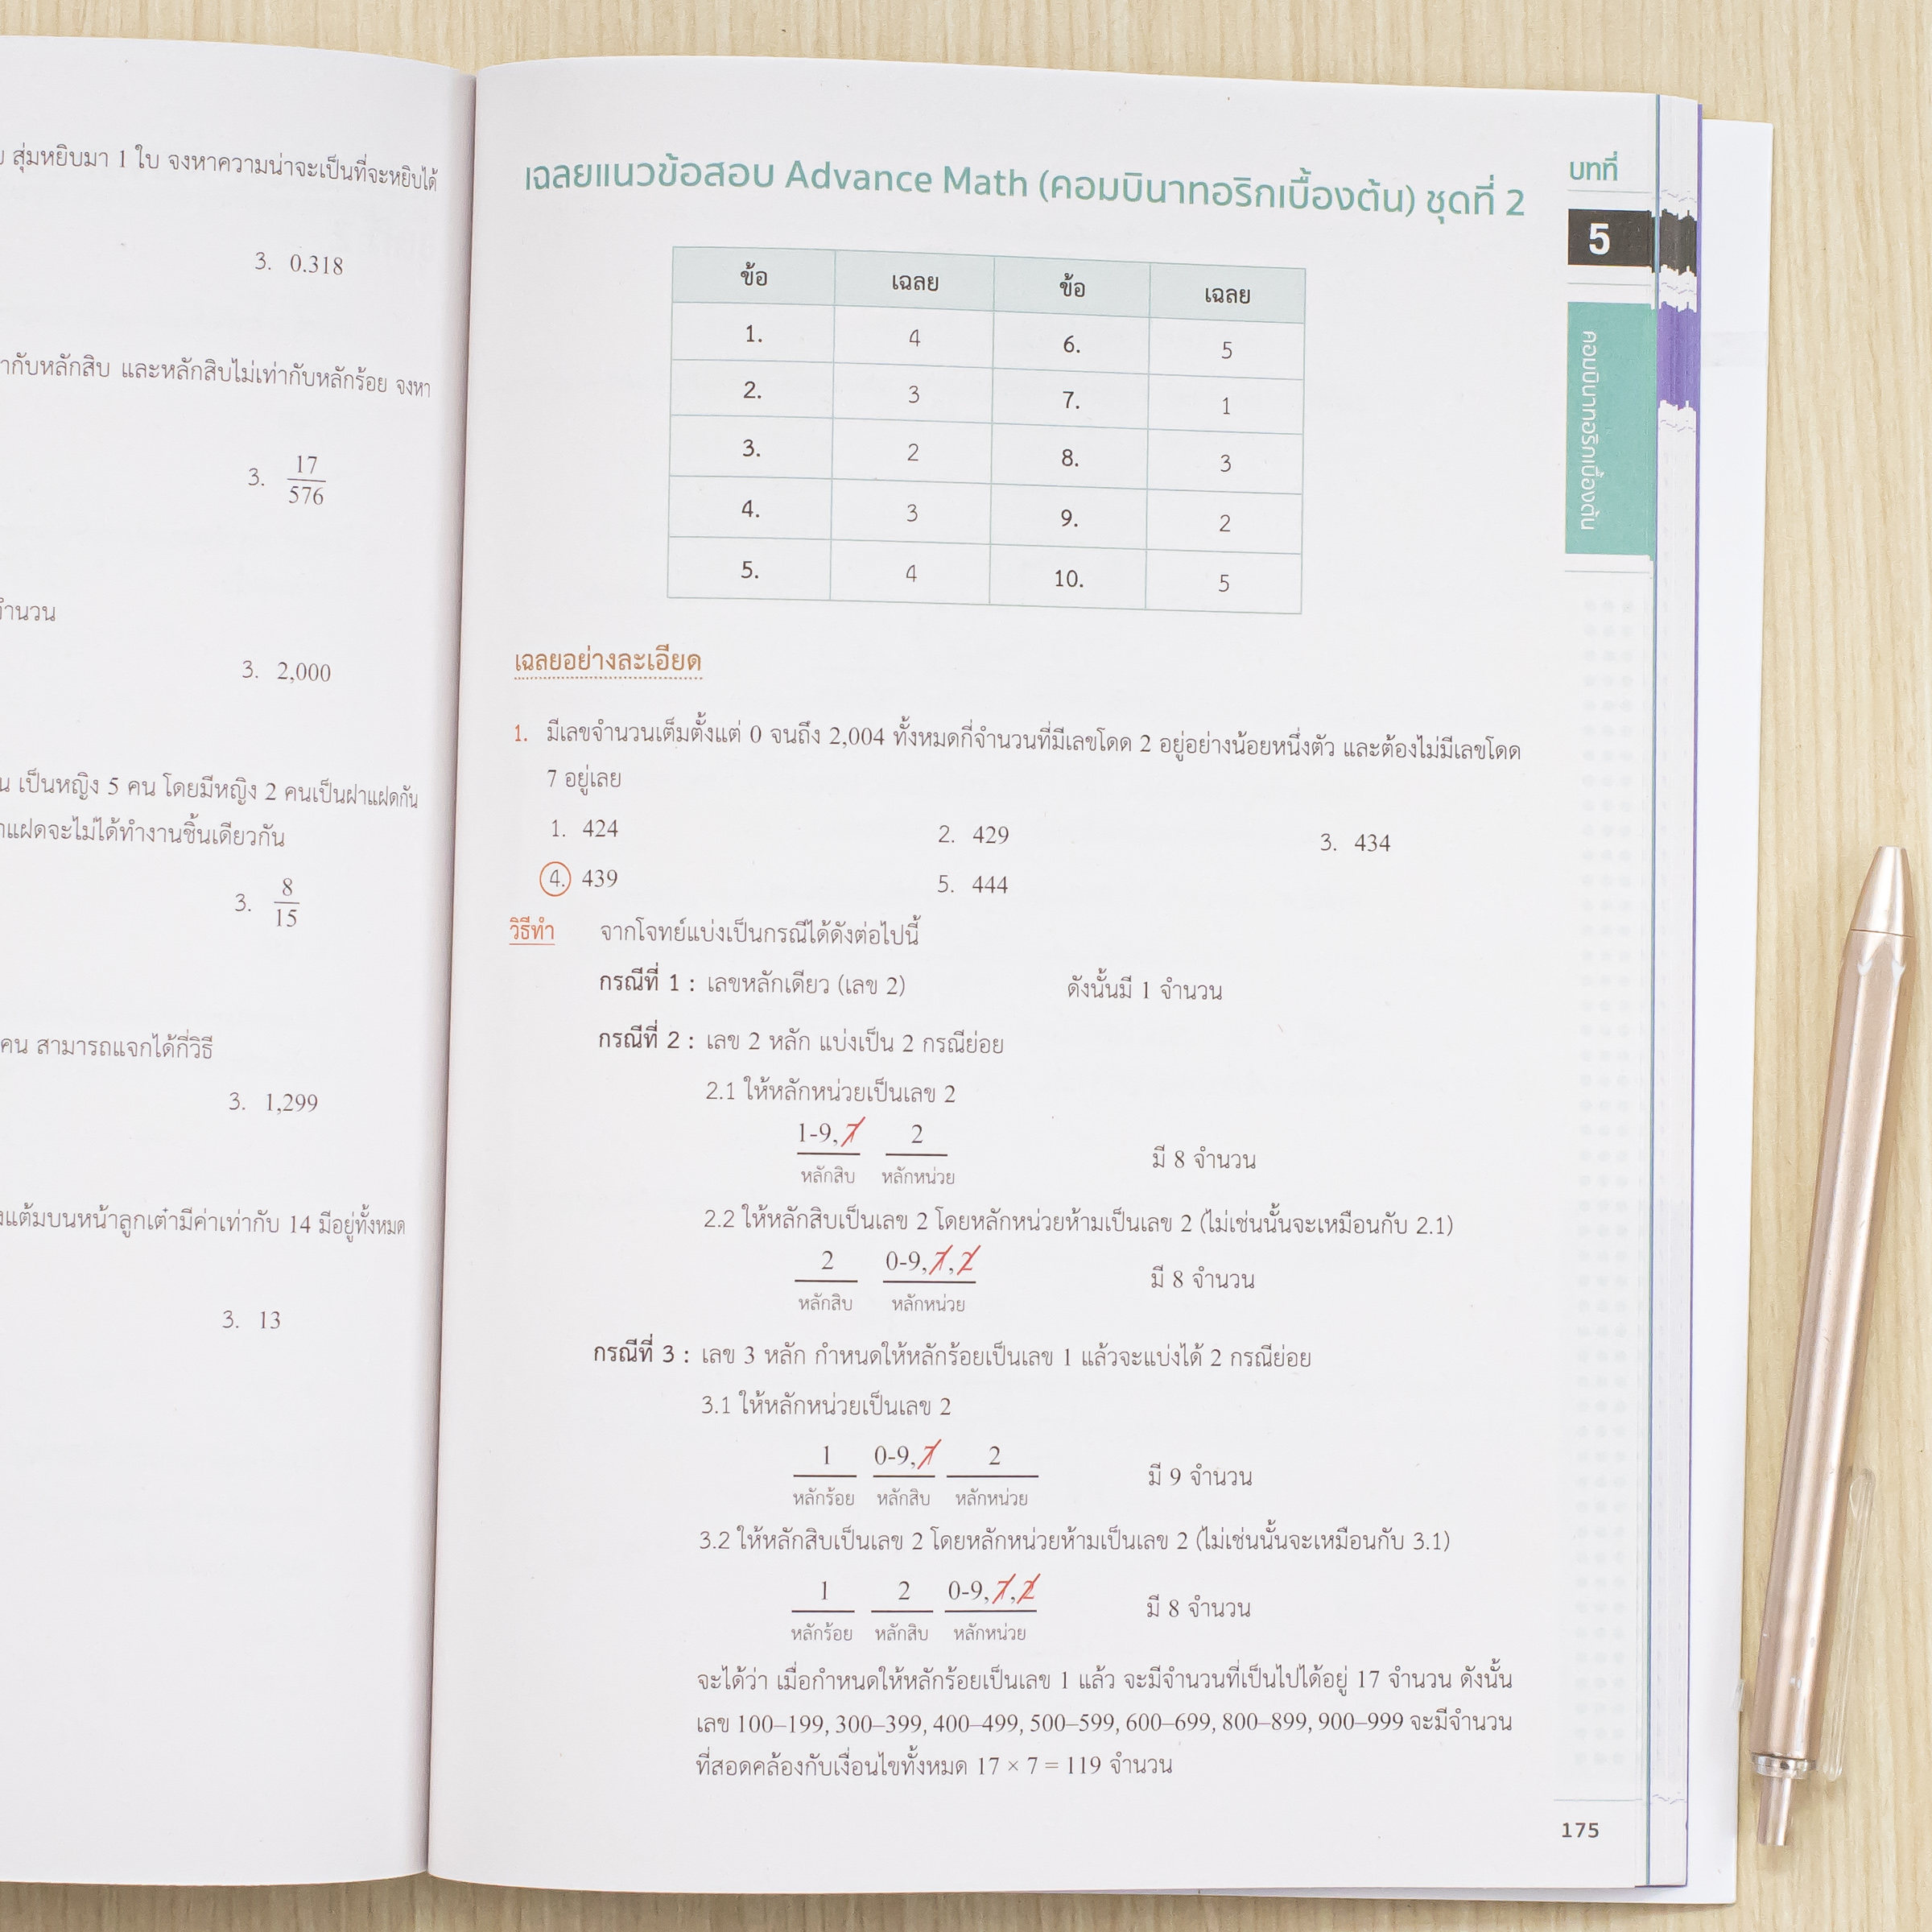 สุ่มหยิบมา 1 ใบ จงหาความน่าจะเป็นที่จะหยิบได้
3. 0.318
กับหลักสิบ และหลักสิบไม่เท่ากับหลักร้อย จงหา
3. 17
576
3. 2,000
เป็นหญิง 5 คน โดยมีหญิง 2 คนเป็นฝาแฝดกัน
จะไม่ได้ทำงานชิ้นเดียวกัน
3. 8
15
คน สามารถแจกได้กี่วิธี
3. 1,299
แต้มบนหน้าลูกเต๋ามีค่าเท่ากับ 14 มีอยู่ทั้งหมด
3. 13
เฉลยแนวข้อสอบ Advance Math (คอมบินาทอริกเบื้องต้น) ชุดที่ 2
ข้อ เฉลย ข้อ เฉลย
1. 4 6. 5
2. 3 7. 1
3. 2 8. 3
4. 3 9. 2
5. 4 10. 5
เฉลยอย่างละเอียด
1. มีเลขจำนวนเต็มตั้งแต่ 0 จนถึง 2,004 ทั้งหมดกี่จำนวนที่มีเลขโดด 2 อยู่อย่างน้อยหนึ่งตัว และต้องไม่มีเลขโดด
7 อยู่เลย
1. 424 2. 429 3. 434
4. 439 5. 444
วิธีทำ จากโจทย์แบ่งเป็นกรณีได้ดังต่อไปนี้
กรณีที่ 1 : เลขหลักเดียว (เลข 2) ดังนั้นมี 1 จำนวน
กรณีที่ 2 : เลข 2 หลัก แบ่งเป็น 2 กรณีย่อย
2.1 ให้หลักหน่วยเป็นเลข 2
1-9,7 2 มี 8 จำนวน
หลักสิบ หลักหน่วย
2.2 ให้หลักสิบเป็นเลข 2 โดยหลักหน่วยห้ามเป็นเลข 2 (ไม่เช่นนั้นจะเหมือนกับ 2.1)
2 0-9,7,2 มี 8 จำนวน
หลักสิบ หลักหน่วย
กรณีที่ 3 : เลข 3 หลัก กำหนดให้หลักร้อยเป็นเลข 1 แล้วจะแบ่งได้ 2 กรณีย่อย
3.1 ให้หลักหน่วยเป็นเลข 2
1 0-9,7 2 มี 9 จำนวน
หลักร้อย หลักสิบ หลักหน่วย
3.2 ให้หลักสิบเป็นเลข 2 โดยหลักหน่วยห้ามเป็นเลข 2 (ไม่เช่นนั้นจะเหมือนกับ 3.1)
1 2 0-9,7,2 มี 8 จำนวน
หลักร้อย หลักสิบ หลักหน่วย
จะได้ว่า เมื่อกำหนดให้หลักร้อยเป็นเลข 1 แล้ว จะมีจำนวนที่เป็นไปได้อยู่ 17 จำนวน ดังนั้น
เลข 100–199, 300–399, 400–499, 500–599, 600–699, 800–899, 900–999 จะมีจำนวน
ที่สอดคล้องกับเงื่อนไขทั้งหมด 17 × 7 = 119 จำนวน
บทที่
5
คอมบินาทอริกเบื้องต้น
175